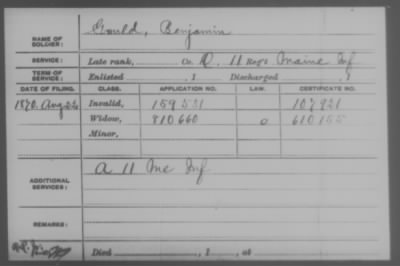 NAME OF SOLDIER: Gould, Benjamin
SERVICE: Late rank, Co. D, 11 Reg't Maine Inf
TERM OF SERVICE: Enlisted , 1 Discharged , 1
DATE OF FILING. CLASS. APPLICATION NO. LAW. CERTIFICATE NO.
1870. Aug 22 Invalid, 159 531 107921
Widow, 810 660 610 155
Minor,
ADDITIONAL SERVICES: A 11 Me Inf
REMARKS:
Died , 1 , at